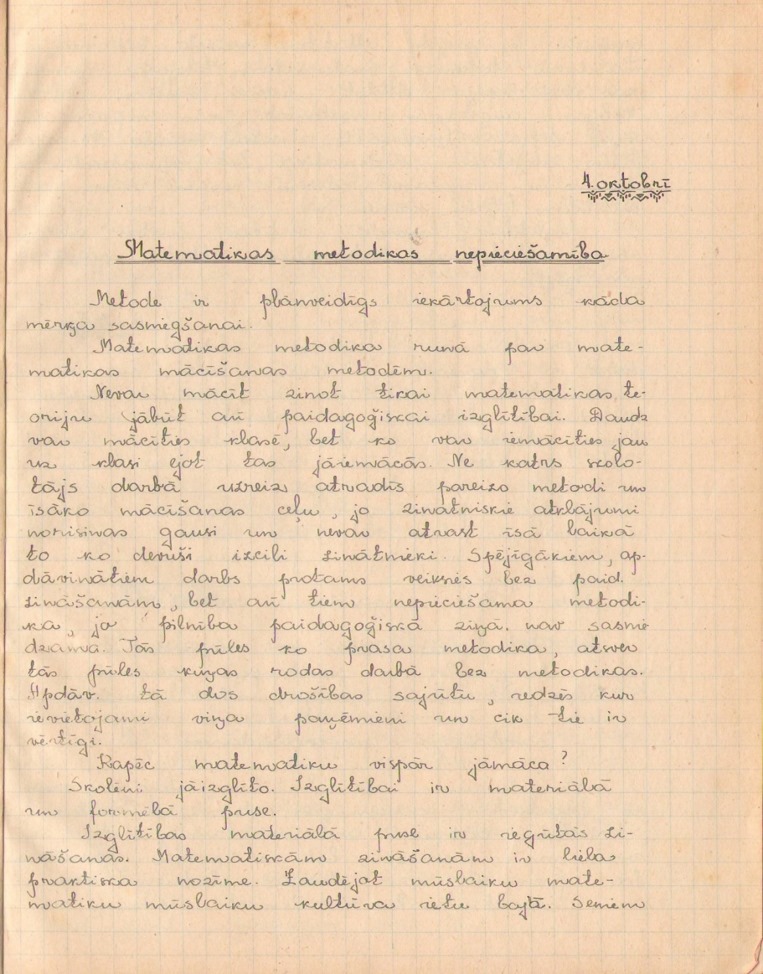 4. oktobrī
Matemātikas metodikas nepieciešamība.
Metode ir plānveidīgs iekārtojums kāda
mērķa sasniegšanai.
Matemātikas metodika runā par mate-
mātikas mācīšanas metodēm.
Nevar mācīt zinot tikai matemātikas te-
oriju jābūt arī paidagoģiskai izglītībai. Daudz
var mācīties klasē, bet ko var iemācīties jau
uz klasi ejot tas jāiemācās. Ne katrs skolo-
tājs darbā uzreiz atradīs pareizo metodi un
īsāko mācīšanas ceļu, jo zinātniskie atklājumi
norisinas gausi un nevar atrast īsā laikā
to ko devuši izcili zinātnieki. Spējīgākiem, ap-
dāvinātiem darbs protams veiksies bez paid.
zināšanām, bet arī tiem nepieciešama metodi-
ka, jo pilnība paidagoģiskā ziņā nav sasnie
dzama. Tās pūles ko prasa metodika, atsver
tās pūles kuŗas rodas darbā bez metodikas.
Apdāv. tā dos drošības sajūtu, redzēs kur
ievietojami viņa paņēmieni un cik tie ir
vērtīgi.
Kapēc matemātiku vispār jāmāca?
Skolēni jāizglīto. Izglītībai ir materiālā
un formālā puse.
Izglītības materiālā puse ir iegūtās zi-
nāšanas. Matemātiskām zināšanām ir liela
praktiska nozīme. Zaudējot mūslaiku mate-
mātiku mūslaiku kultūra ietu bojā. Seniem